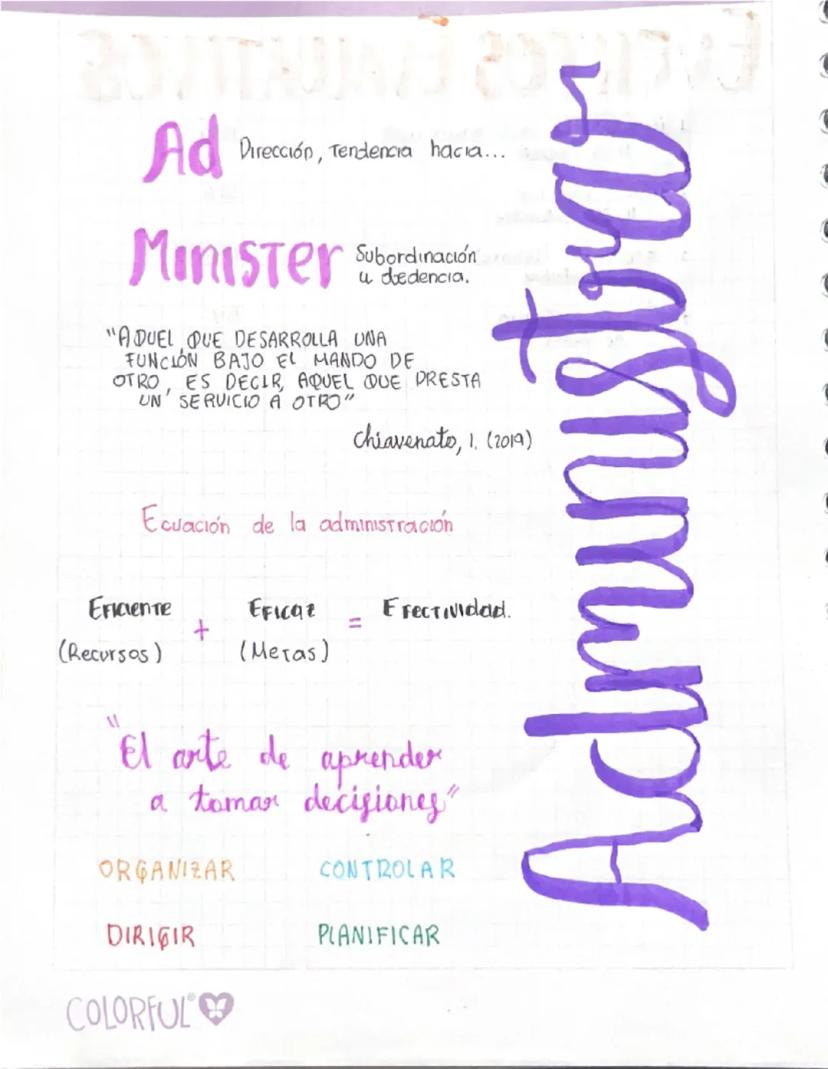 Administrar
Ad Dirección, Tendencia hacia...
Minister Subordinación
u obedencia.
"AQUEL QUE DESARROLLA UNA
FUNCIÓN BAJO EL MANDO DE
OTRO, ES DECIR, AQUEL QUE PRESTA
UN SERVICIO A OTRO"
Chiavenato, I. (2019)
Ecuación de la administración
Eficiente + Eficaz = Efectividad.
(Recursos) (Metas)
"El arte de aprender
a tomar decisiones"
ORGANIZAR CONTROLAR
DIRIGIR PLANIFICAR
COLORFUL